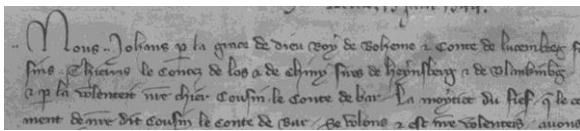 Nous . Johans p la grace de dieu Roy de Boheme & Conte de lucemb'g
sires . Thieris le Contez de los & de Chiny sires de heynsberg & de blankinb'g
& p la volenteit nre chier Cousin le Conte de bar . La moytiet du fief . q le
ment de nre dit Cousin le Conte de Bar . Se volons & est nre volenteis . avons